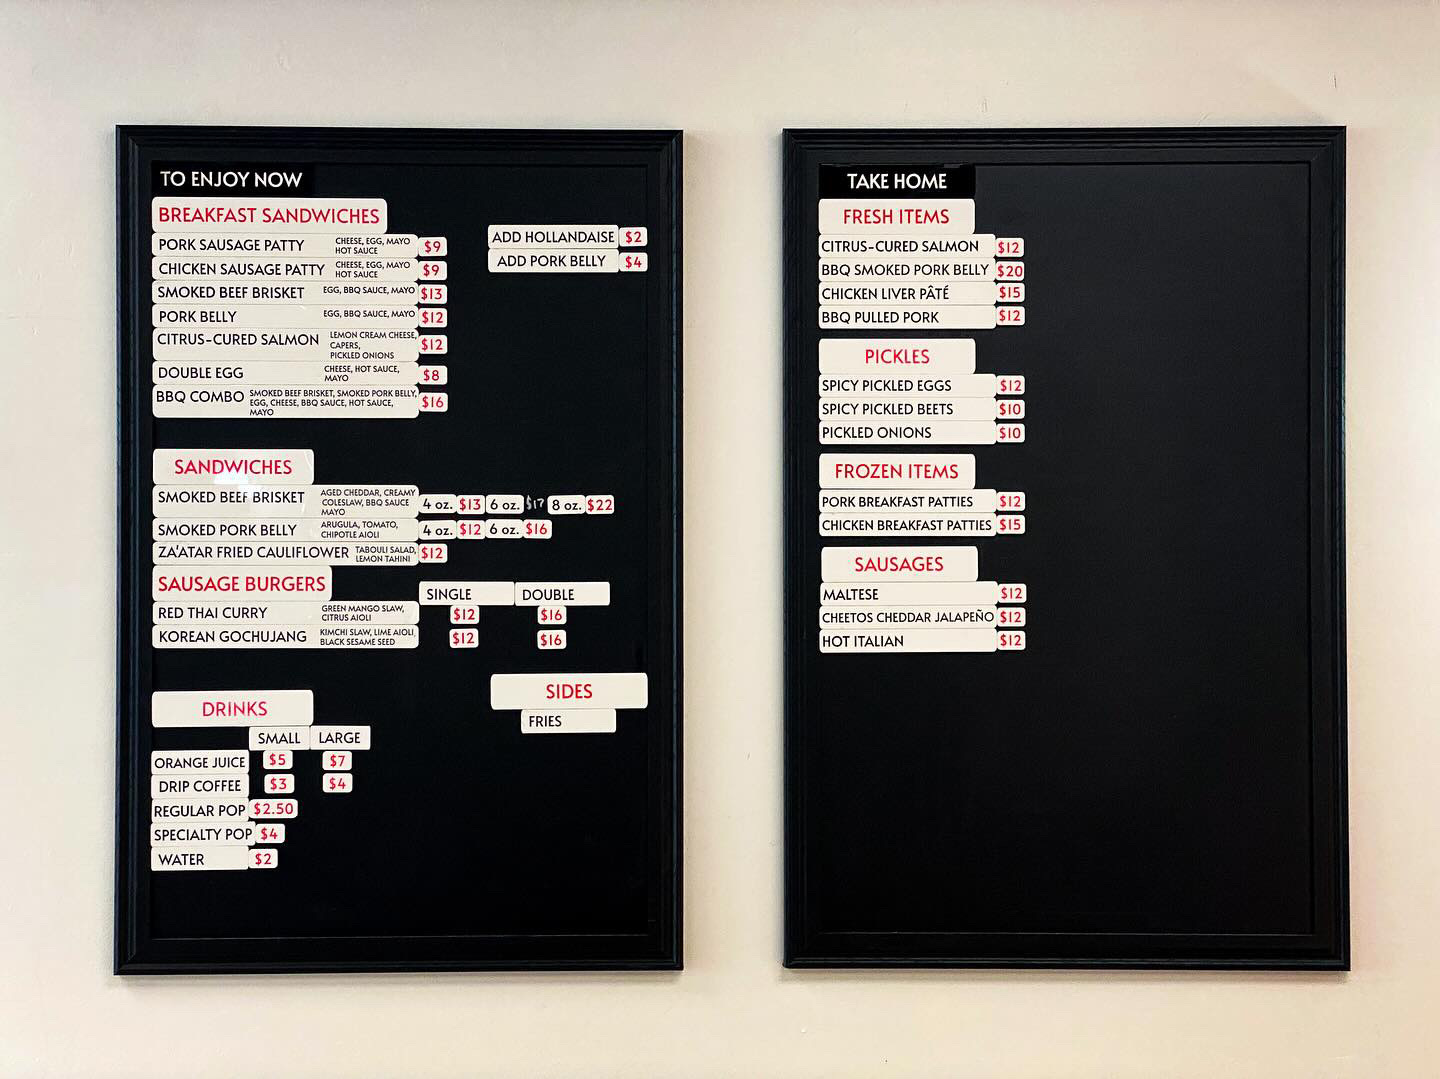 TO ENJOY NOW
BREAKFAST SANDWICHES
PORK SAUSAGE PATTY CHEESE, EGG, MAYO $9
HOT SAUCE
CHICKEN SAUSAGE PATTY CHEESE, EGG, MAYO $9
HOT SAUCE
SMOKED BEEF BRISKET EGG, BBQ SAUCE, MAYO $13
PORK BELLY EGG, BBQ SAUCE, MAYO $12
CITRUS-CURED SALMON LEMON CREAM CHEESE, $12
CAPERS,
PICKLED ONIONS
DOUBLE EGG CHEESE, HOT SAUCE, $8
MAYO
BBQ COMBO SMOKED BEEF BRISKET, SMOKED PORK BELLY, $16
EGG, CHEESE, BBQ SAUCE, HOT SAUCE,
MAYO
ADD HOLLANDAISE $2
ADD PORK BELLY $4
SANDWICHES
SMOKED BEEF BRISKET AGED CHEDDAR, CREAMY 4 oz. $13 6 oz. $17 8 oz. $22
COLESLAW, BBQ SAUCE
MAYO
SMOKED PORK BELLY ARUGULA, TOMATO, 4 oz. $12 6 oz. $16
CHIPOTLE AIOLI
ZA'ATAR FRIED CAULIFLOWER TABOULI SALAD, $12
LEMON TAHINI
SAUSAGE BURGERS SINGLE DOUBLE
RED THAI CURRY GREEN MANGO SLAW, $12 $16
CITRUS AIOLI
KOREAN GOCHUJANG KIMCHI SLAW, LIME AIOLI, $12 $16
BLACK SESAME SEED
SIDES
FRIES
DRINKS
SMALL LARGE
ORANGE JUICE $5 $7
DRIP COFFEE $3 $4
REGULAR POP $2.50
SPECIALTY POP $4
WATER $2
TAKE HOME
FRESH ITEMS
CITRUS-CURED SALMON $12
BBQ SMOKED PORK BELLY $20
CHICKEN LIVER PÂTÉ $15
BBQ PULLED PORK $12
PICKLES
SPICY PICKLED EGGS $12
SPICY PICKLED BEETS $10
PICKLED ONIONS $10
FROZEN ITEMS
PORK BREAKFAST PATTIES $12
CHICKEN BREAKFAST PATTIES $15
SAUSAGES
MALTESE $12
CHEETOS CHEDDAR JALAPEÑO $12
HOT ITALIAN $12